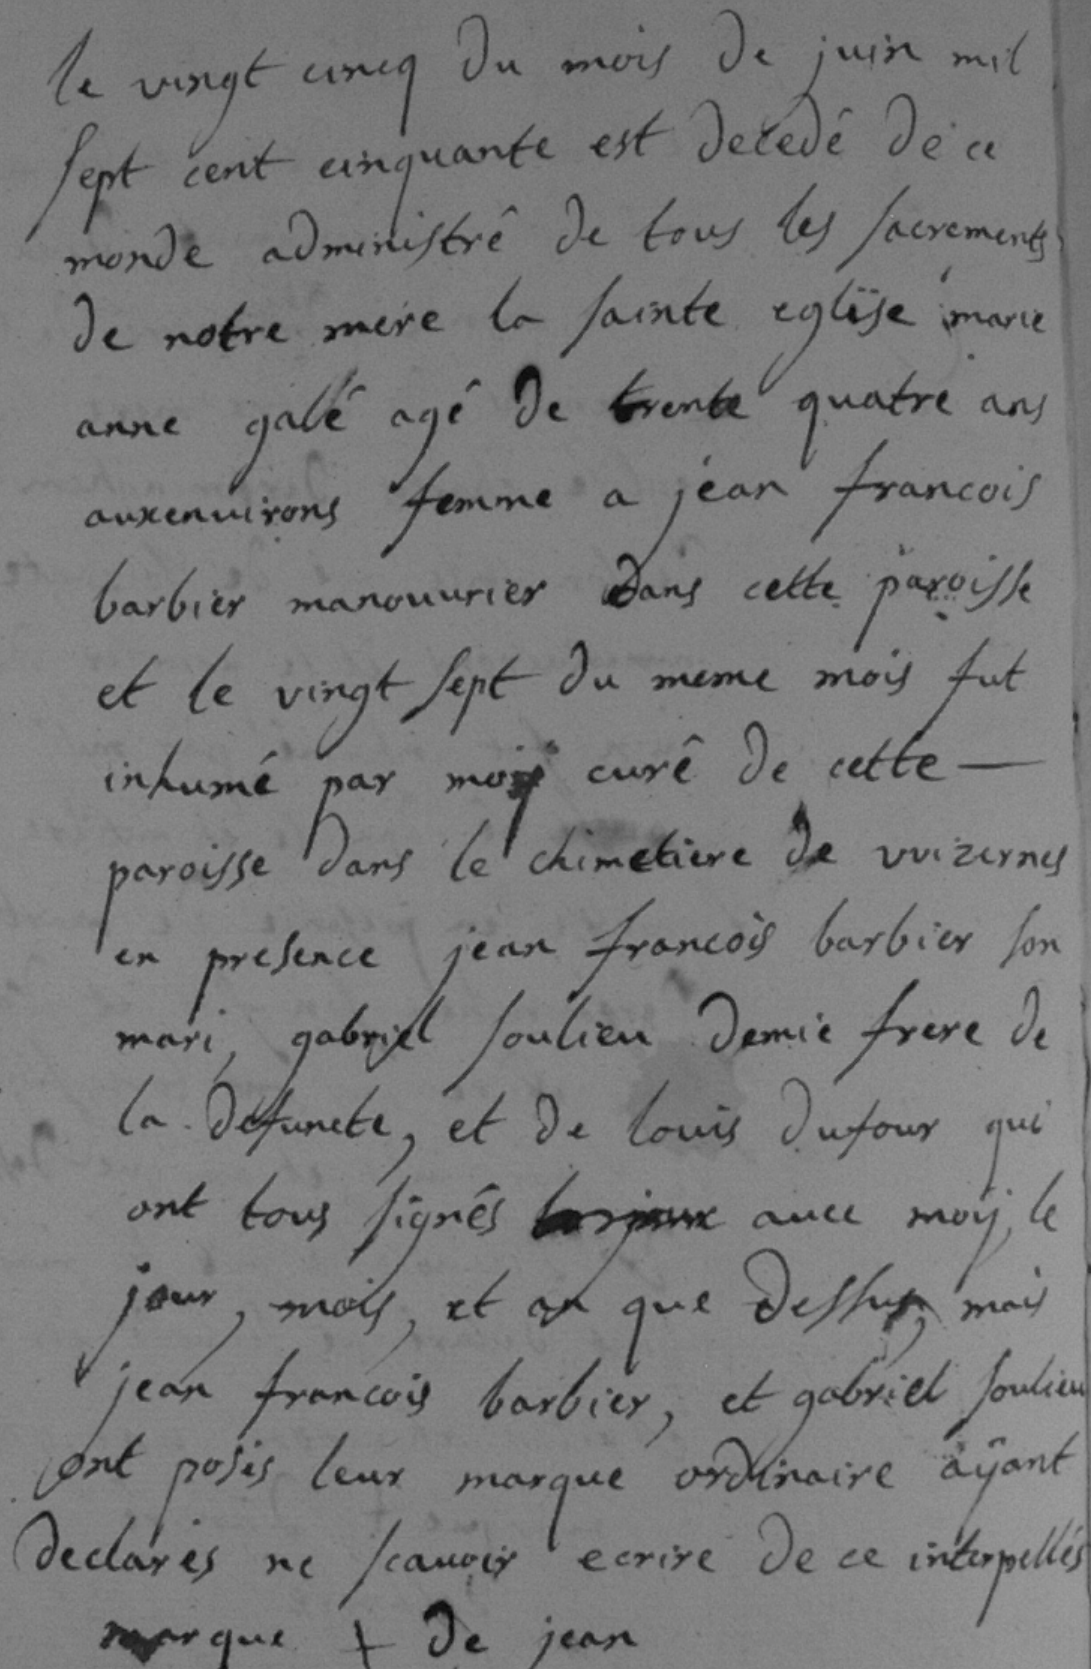 le vingt cincq du mois de juin mil
sept cent cinquante est decedé de ce
monde administré de tous les sacrements
de notre mere la sainte eglise marie
anne galé agé de trente quatre ans
auxenuirons femme a jean francois
barbier manouurier dans cette paroisse
et le vingt sept du meme mois fut
inhumé par moy curé de cette —
paroisse dans le chimetiere de vvizernes
en presence jean francois barbier son
mari, gabriel soulieu demie frere de
la defuncte, et de louis dufour qui
ont tous signés auec moÿ, le
jour, mois, et an que dessus, mais
jean francois barbier, et gabriel soulieu
ont posés leur marque ordinaire aÿant
declarés ne scauoir ecrire de ce interpellés
marque + de jean